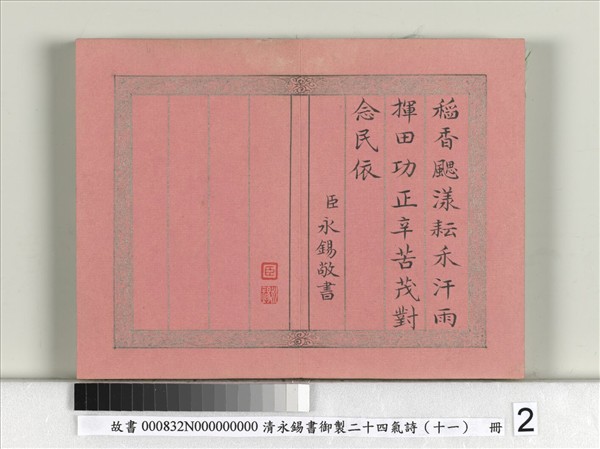 稻香颸漾耘禾汗雨
揮田功正辛苦茂對
念民依
臣永錫敬書
臣
故書 000832N000000000 清永錫書御製二十四氣詩（十一） 冊
2